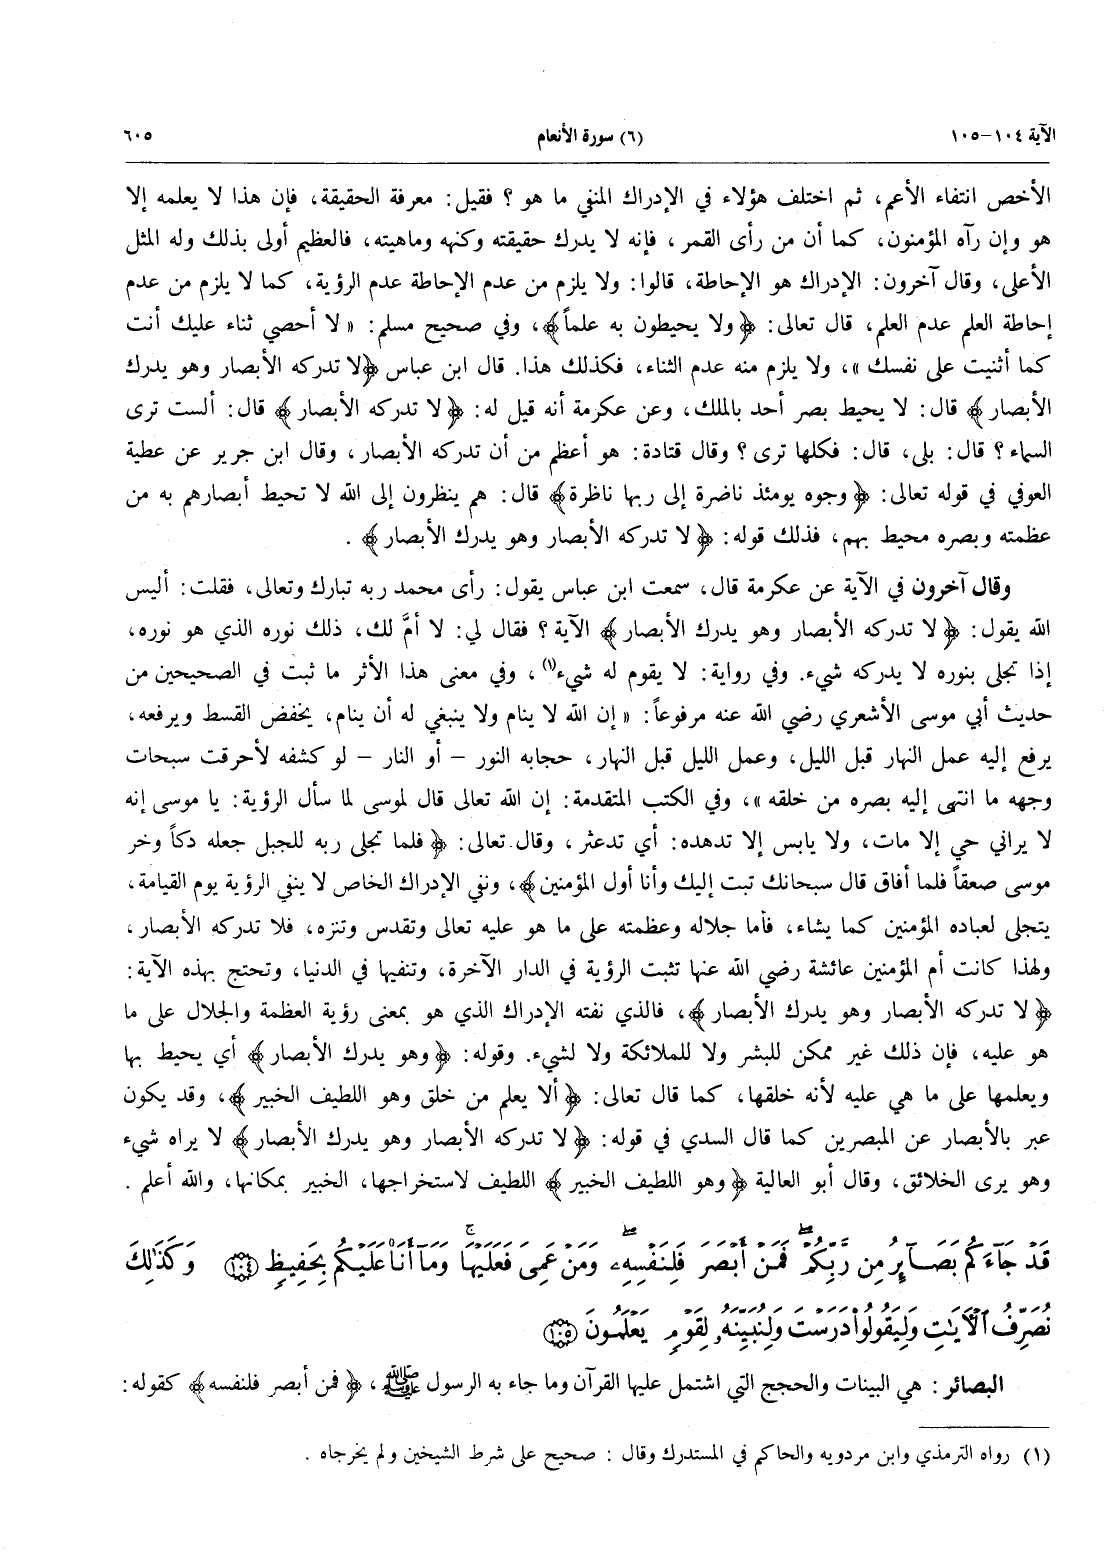 الآية ١٠٤–١٠٥ (٦) سورة الأنعام ٦٠٥
الأخص انتفاء الأعم، ثم اختلف هؤلاء في الإدراك المنفي ما هو ؟ فقيل: معرفة الحقيقة، فإن هذا لا يعلمه إلا
هو وإن رآه المؤمنون، كما أن من رأى القمر ، فإنه لا يدرك حقيقته وكنهه وماهيته، فالعظيم أولى بذلك وله المثل
الأعلى، وقال آخرون: الإدراك هو الإحاطة، قالوا: ولا يلزم من عدم الإحاطة عدم الرؤية، كما لا يلزم من عدم
إحاطة العلم عدم العلم، قال تعالى: ﴿ولا يحيطون به علماً﴾، وفي صحيح مسلم: « لا أحصي ثناء عليك أنت
كما أثنيت على نفسك »، ولا يلزم منه عدم الثناء، فكذلك هذا. قال ابن عباس ﴿لا تدركه الأبصار وهو يدرك
الأبصار﴾ قال: لا يحيط بصر أحد بالملك، وعن عكرمة أنه قيل له: ﴿لا تدركه الأبصار﴾ قال: ألست ترى
السماء ؟ قال: بلى، قال: فكلها ترى ؟ وقال قتادة: هو أعظم من أن تدركه الأبصار، وقال ابن جرير عن عطية
العوفي في قوله تعالى: ﴿وجوه يومئذ ناضرة إلى ربها ناظرة﴾ قال: هم ينظرون إلى الله لا تحيط أبصارهم به من
عظمته وبصره محيط بهم، فذلك قوله: ﴿لا تدركه الأبصار وهو يدرك الأبصار﴾ .
وقال آخرون في الآية عن عكرمة قال، سمعت ابن عباس يقول: رأى محمد ربه تبارك وتعالى، فقلت: أليس
الله يقول: ﴿لا تدركه الأبصار وهو يدرك الأبصار﴾ الآية ؟ فقال لي: لا أمَّ لك، ذلك نوره الذي هو نوره،
إذا تجلى بنوره لا يدركه شيء. وفي رواية: لا يقوم له شيء(١)، وفي معنى هذا الأثر ما ثبت في الصحيحين من
حديث أبي موسى الأشعري رضي الله عنه مرفوعاً: « إن الله لا ينام ولا ينبغي له أن ينام، يخفض القسط ويرفعه،
يرفع إليه عمل النهار قبل الليل، وعمل الليل قبل النهار، حجابه النور – أو النار – لو كشفه لأحرقت سبحات
وجهه ما انتهى إليه بصره من خلقه »، وفي الكتب المتقدمة: إن الله تعالى قال لموسى لما سأل الرؤية: يا موسى إنه
لا يراني حي إلا مات، ولا يابس إلا تدهده: أي تدعثر ، وقال تعالى: ﴿فلما تجلى ربه للجبل جعله دكاً وخر
موسى صعقاً فلما أفاق قال سبحانك تبت إليك وأنا أول المؤمنين﴾، ونفي الإدراك الخاص لا ينفي الرؤية يوم القيامة،
يتجلى لعباده المؤمنين كما يشاء، فأما جلاله وعظمته على ما هو عليه تعالى وتقدس وتنزه، فلا تدركه الأبصار،
ولهذا كانت أم المؤمنين عائشة رضي الله عنها تثبت الرؤية في الدار الآخرة، وتنفيها في الدنيا، وتحتج بهذه الآية:
﴿لا تدركه الأبصار وهو يدرك الأبصار﴾، فالذي نفته الإدراك الذي هو بمعنى رؤية العظمة والجلال على ما
هو عليه، فإن ذلك غير ممكن للبشر ولا للملائكة ولا لشيء. وقوله: ﴿وهو يدرك الأبصار﴾ أي يحيط بها
ويعلمها على ما هي عليه لأنه خلقها، كما قال تعالى: ﴿ألا يعلم من خلق وهو اللطيف الخبير﴾، وقد يكون
عبر بالأبصار عن المبصرين كما قال السدي في قوله: ﴿لا تدركه الأبصار وهو يدرك الأبصار﴾ لا يراه شيء
وهو يرى الخلائق، وقال أبو العالية ﴿وهو اللطيف الخبير﴾ اللطيف لاستخراجها، الخبير بمكانها، والله أعلم .
قَدْ جَآءَكُم بَصَآئِرُ مِن رَّبِّكُمْ ۖ فَمَنْ أَبْصَرَ فَلِنَفْسِهِۦ ۖ وَمَنْ عَمِىَ فَعَلَيْهَا ۚ وَمَآ أَنَا۠ عَلَيْكُم بِحَفِيظٍ ١٠٤ وَكَذَٰلِكَ
نُصَرِّفُ ٱلْءَايَٰتِ وَلِيَقُولُوا۟ دَرَسْتَ وَلِنُبَيِّنَهُۥ لِقَوْمٍ يَعْلَمُونَ ١٠٥
البصائر : هي البينات والحجج التي اشتمل عليها القرآن وما جاء به الرسول ﷺ، ﴿فمن أبصر فلنفسه﴾ كقوله:
(١) رواه الترمذي وابن مردويه والحاكم في المستدرك وقال : صحيح على شرط الشيخين ولم يخرجاه .